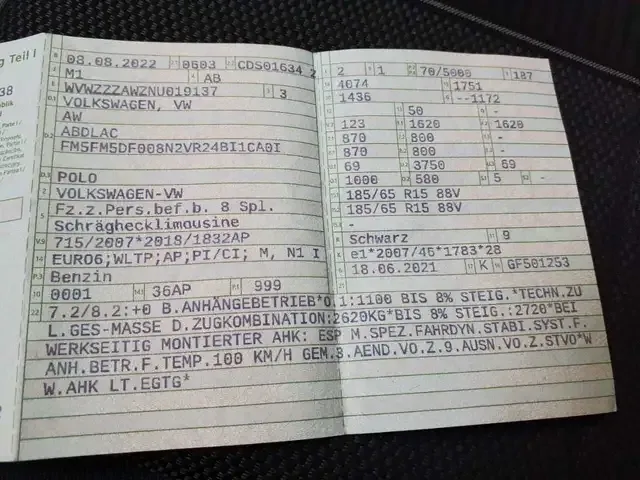 g Teil I
38
blik
08.08.2022 0603 CDS01634 2
M1 AB
WVWZZZAWZNU019137 3
VOLKSWAGEN, VW
AW
ABDLAC
FM5FM5DF008N2VR24BI1CA0I
POLO
VOLKSWAGEN-VW
Fz.z.Pers.bef.b. 8 Spl.
Schräghecklimousine
715/2007*2018/1832AP
EURO6;WLTP;AP;PI/CI; M, N1 I
Benzin
0001 36AP 999
2 1 70/5000 187
4074 1751
1436 --1172
50 -
123 1620 1620
870 800 -
870 800 -
69 3750 69
1000 580 5 -
185/65 R15 88V
185/65 R15 88V
-
Schwarz 9
e1*2007/46*1783*28
18.06.2021 K GF501253
7.2/8.2:+0 B.ANHÄNGEBETRIEB*O.1:1100 BIS 8% STEIG.*TECHN.ZU
L.GES-MASSE D.ZUGKOMBINATION:2620KG*BIS 8% STEIG.:2720*BEI
WERKSEITIG MONTIERTER AHK: ESP M.SPEZ.FAHRDYN.STABI.SYST.F.
ANH.BETR.F.TEMP.100 KM/H GEM.3.AEND.VO.Z.9.AUSN.VO.Z.STVO*W
W.AHK LT.EGTG*